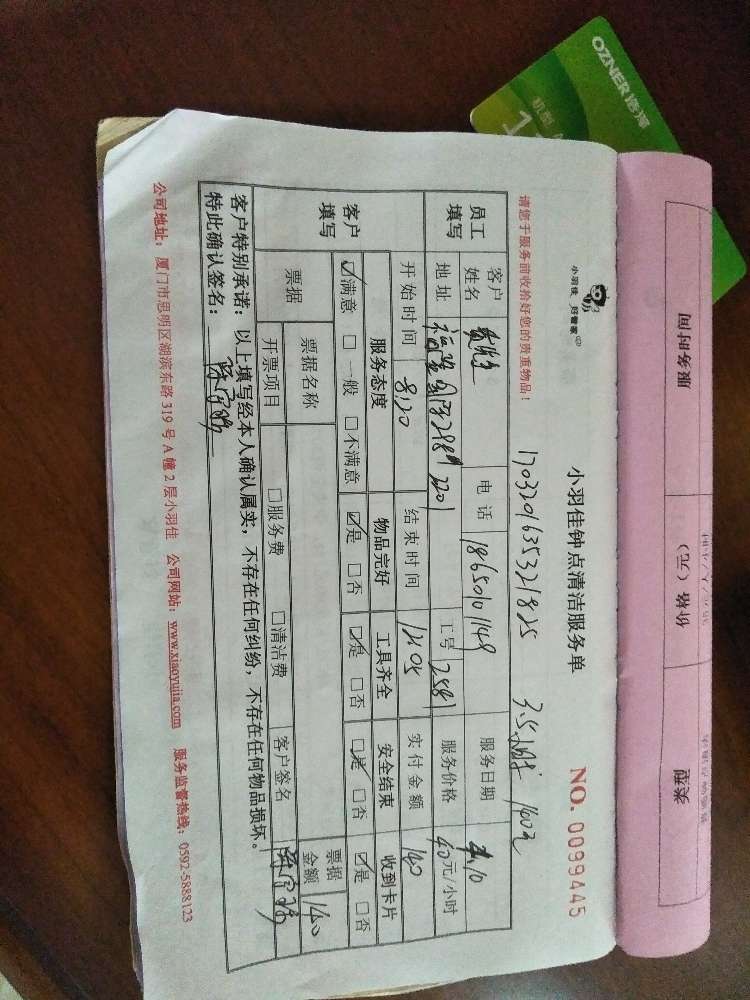 OZNER 浩泽
机型
服务时间
价格（元）
小羽佳 好管家
小羽佳钟点清洁服务单
NO. 0099445
请您于服务前收拾好您的贵重物品！
1703201635321825 3.5小时 140元
员工填写
客户姓名
电话 18650101149
服务日期 10
地址 2201
工号 2581
服务价格 40元/小时
客户填写
开始时间 8:20
结束时间 12:05
实付金额 140
服务态度 物品完好 工具齐全 安全结束 收到卡片
☑满意 □一般 □不满意 ☑是 □否 ☑是 □否 ☑是 □否 ☑是 □否
票据
票据名称
票据金额 140
开票项目 □服务费 □清洁费 客户签名
客户特别承诺：以上填写经本人确认属实，不存在任何纠纷，不存在任何物品损坏。
特此确认签名：
公司地址：厦门市思明区湖滨东路319号A幢2层小羽佳 公司网站：www.xiaoyujia.com 服务监督热线：0592-5888123